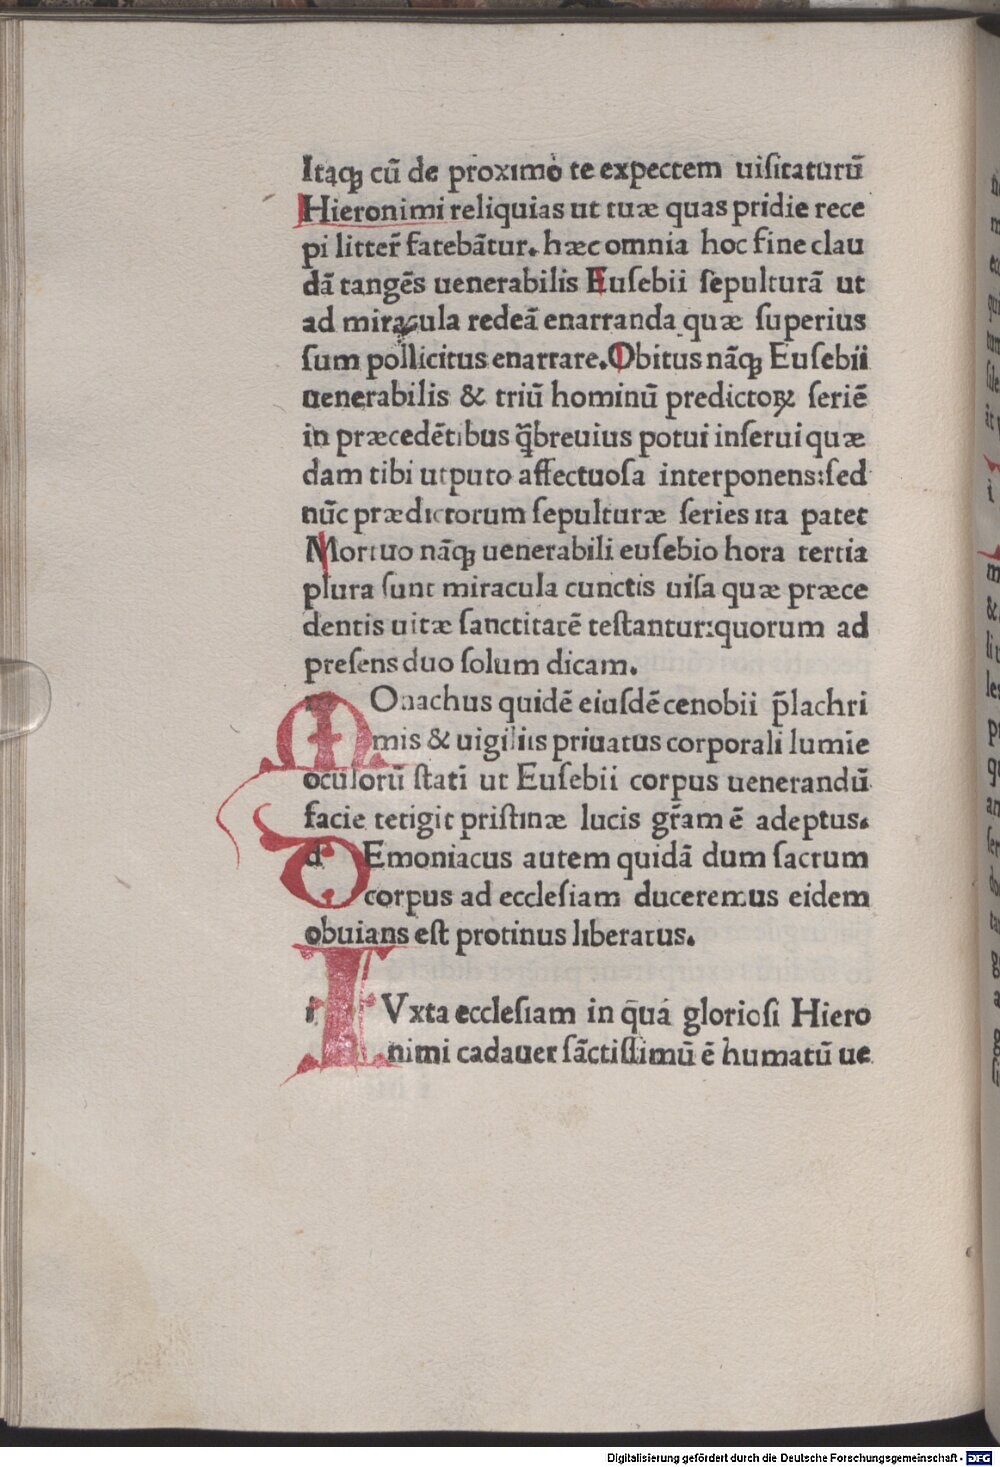 Itaqꝫ cū de proximo te expectem uiſitaturū
Hieronimi reliquias ut tuæ quas pridie rece
pi litter̄ fatebātur. hæc omnia hoc fine clau
dā tangēs uenerabilis Euſebii ſepulturā ut
ad miracula redeā enarranda quæ ſuperius
ſum pollicitus enarrare. Obitus nāqꝫ Euſebii
uenerabilis & triū hominū predictoꝝ ſeriē
in præcedētibus q̄breuius potui inſerui quæ
dam tibi ut puto affectuoſa interponens: ſed
nūc prædictorum ſepulturæ ſeries ita patet
Mortuo nāqꝫ uenerabili euſebio hora tertia
plura ſunt miracula cunctis uiſa quæ præce
dentis uitæ ſanctitatē teſtantur: quorum ad
preſens duo ſolum dicam.
MOnachus quidē eiuſdē cenobii p̄lachri
mis & uigiliis priuatus corporali lumīe
oculorū ſtatī ut Euſebii corpus uenerandū
facie tetigit priſtinæ lucis gr̄am ē adeptus.
dEmoniacus autem quidā dum ſacrum
corpus ad eccleſiam duceremus eidem
obuians eſt protinus liberatus.
IVxta eccleſiam in qua glorioſi Hiero
nimi cadauer ſāctiſſimū ē humatū ue
Digitalisierung gefördert durch die Deutsche Forschungsgemeinschaft - DFG